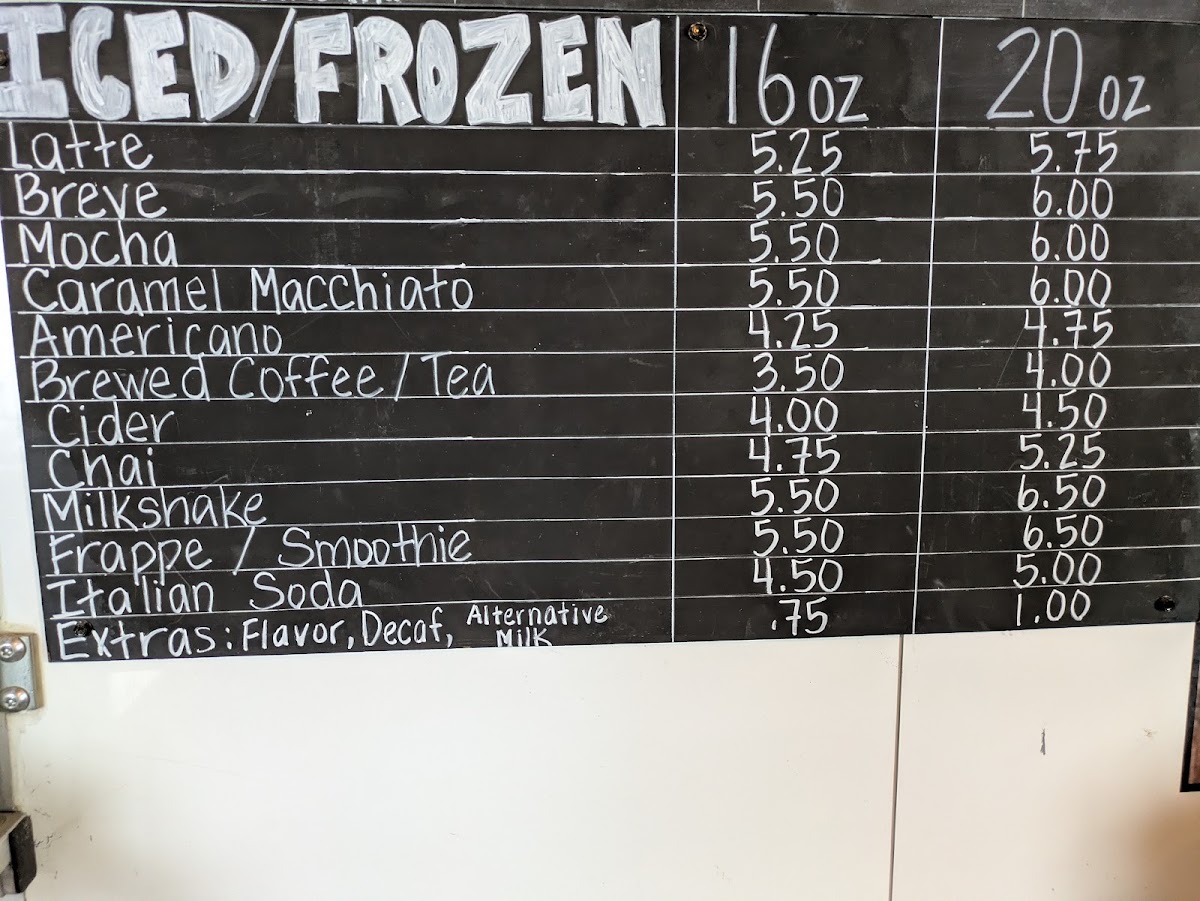 ICED/FROZEN 16 oz 20 oz
Latte 5.25 5.75
Breve 5.50 6.00
Mocha 5.50 6.00
Caramel Macchiato 5.50 6.00
Americano 4.25 4.75
Brewed Coffee/Tea 3.50 4.00
Cider 4.00 4.50
Chai 4.75 5.25
Milkshake 5.50 6.50
Frappe / Smoothie 5.50 6.50
Italian Soda 4.50 5.00
Extras: Flavor, Decaf, Alternative Milk .75 1.00